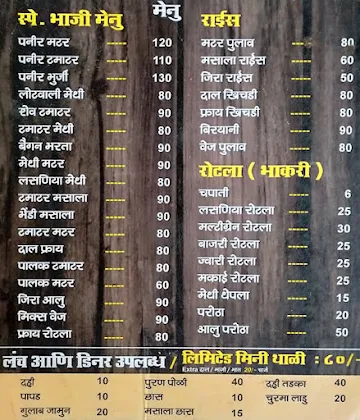 मेनु
स्पे. भाजी मेनु
पनीर मटर ----- 120
पनीर टमाटर ----- 110
पनीर भुर्जी ----- 130
लीलवाली मेथी ----- 80
शेव टमाटर ----- 90
टमाटर मेथी ----- 80
बैगन भरता ----- 90
मेथी मटर ----- 90
लसणिया मेथी ----- 80
टमाटर मसाला ----- 90
भेंडी मसाला ----- 90
टमाटर मटर ----- 80
दाल फ्राय ----- 80
पालक टमाटर ----- 80
पालक मटर ----- 60
जिरा आलु ----- 90
मिक्स वेज ----- 90
फ्राय रोटला ----- 80
राईस
मटर पुलाव ----- 80
मसाला राईस ----- 60
जिरा राईस ----- 50
दाल खिचडी ----- 80
फ्राय खिचडी ----- 80
बिरयानी ----- 90
वेज पुलाव ----- 80
रोटला ( भाकरी )
चपाती ----- 6
लसणिया रोटला ----- 25
मल्टीग्रेन रोटला ----- 30
बाजरी रोटला ----- 25
ज्वारी रोटला ----- 25
मकाई रोटला ----- 25
मेथी थेपला ----- 15
परोठा ----- 20
आलु परोठा ----- 50
लंच आणि डिनर उपलब्ध / लिमिटेड मिनी थाळी : ८०/-
Extra दाल / भाजी / भात 20/- चार्ज
दही 10 पुरण पोळी 40 दही तडका 40
पापड 10 छास 10 चुरमा लाडु 20
गुलाब जामुन 20 मसाला छास 15